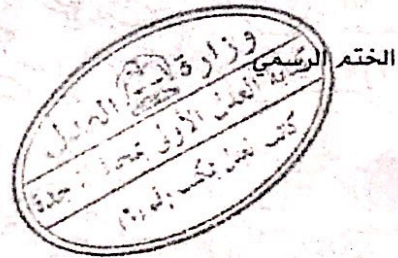 الختم الرسمي
وزارة العدل
كتابة العدل الأولى بمحافظة جدة
كاتب عدل مكتب رقم